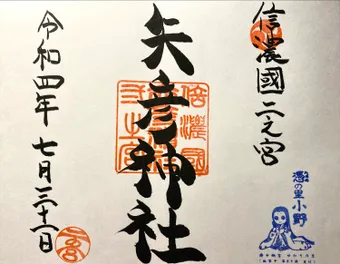 信濃國二之宮
矢彦神社
信濃國
二之宮
令和四年 七月二十一日
憑の里小野